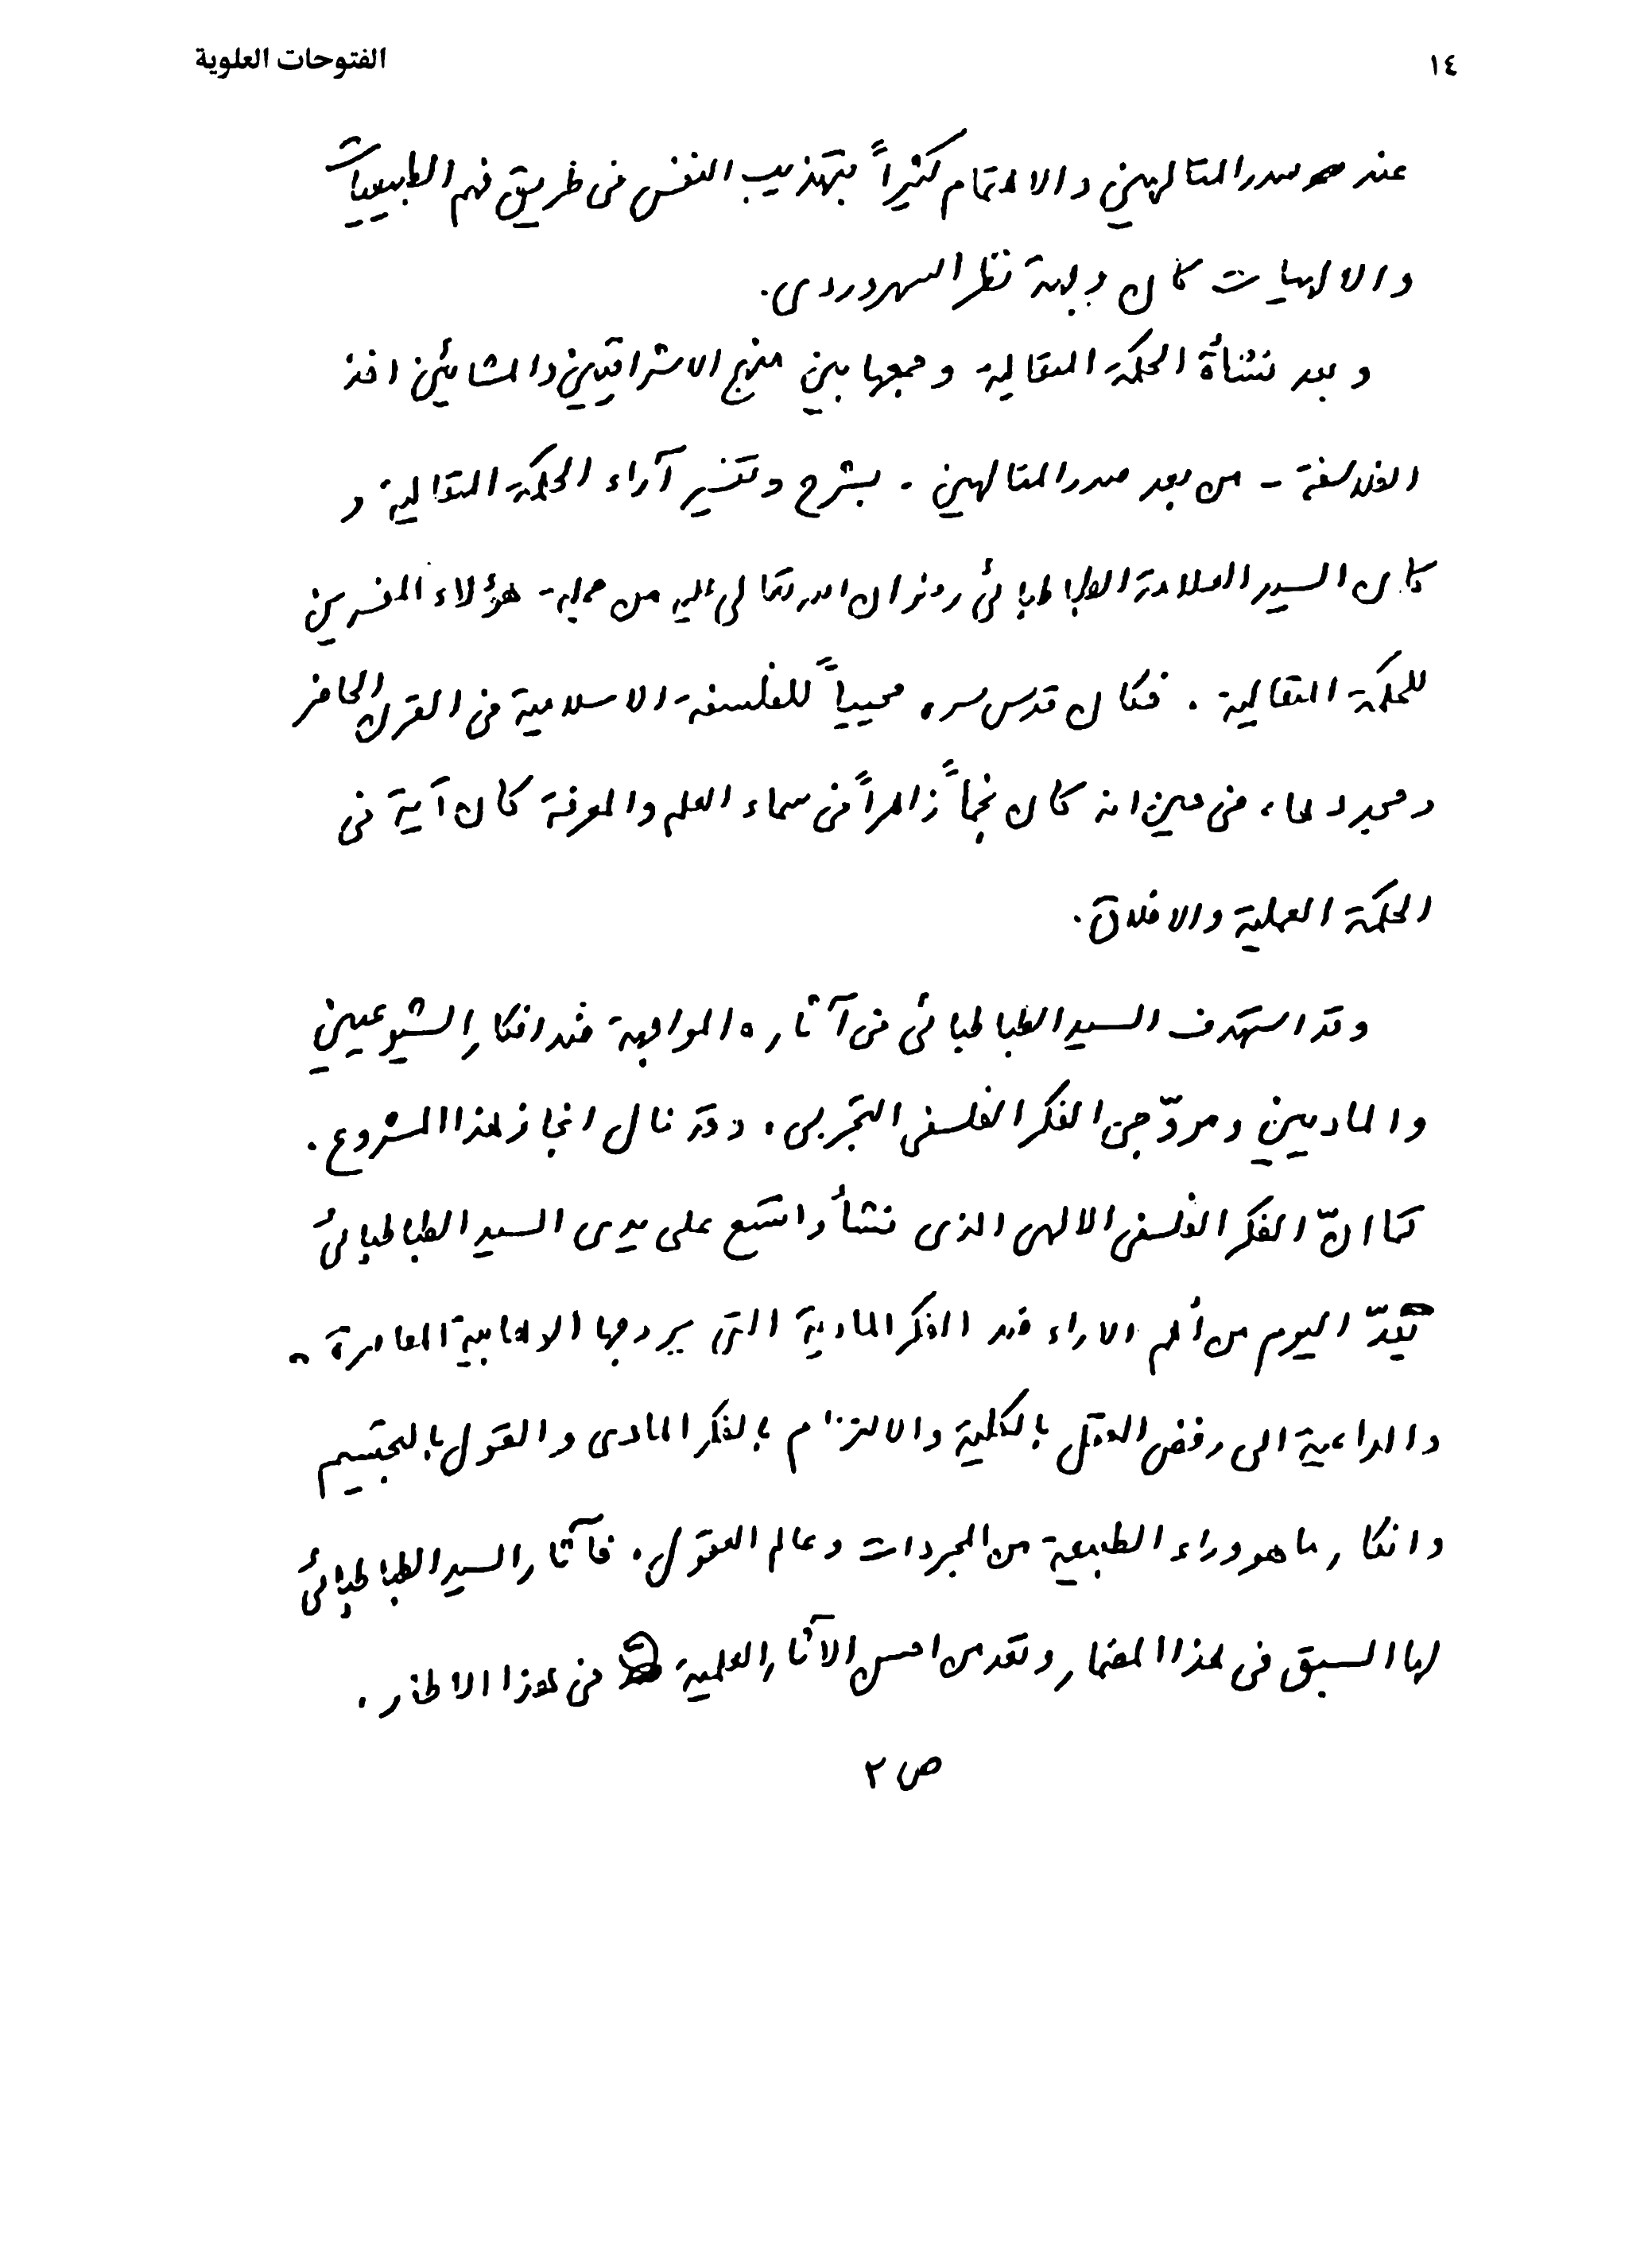 ١٤
الفتوحات العلوية
عند صدر المتالهين والاهتمام كثيراً بتهذيب النفس فى طريق فهم الطبيعيات
والالهيات كان وجهة نظر السهروردى.
وبعد نشأة الحكمة المتعالية وجمعها بين منهج الاشراقيين والمشائين اخذ
الفلاسفة - من بعد صدر المتالهين - بشرح وتفسير آراء الحكمة المتعالية و
كان السيد العلامة الطباطبائى رضوان الله تعالى عليه من جملة هؤلاء المفسرين
للحكمة المتعالية . فكان قدس سره محيياً للفلسفة الاسلامية فى القرن الحاضر
ومجددها، فى حين انه كان نجماً زاهراً فى سماء العلم والمعرفة كان آية فى
الحكمة العملية والاخلاق.
وقد استهدف السيد الطباطبائى فى آثاره المواجهة ضد افكار الشيوعيين
والماديين ومروّجى الفكر الفلسفى التجربى، وقد نال انجاز هذا المشروع.
كما انّ الفكر الفلسفى الالهى الذى نشأ واتسع على يدى السيد الطباطبائى
يعدّ اليوم من أهم الاراء ضد الفكر المادية التى يروجها الوهابية المعاصرة
والداعية الى رفض العقل بالكلية والالتزام بالفكر المادى والقول بالتجسيم
وانكار ما هو وراء الطبيعة من المجردات وعالم العقول. فآثار السيد الطباطبائى
لها السبق فى هذا المضمار وتعد من احسن الآثار العلمية فى هذا الاطار.
ص ٢